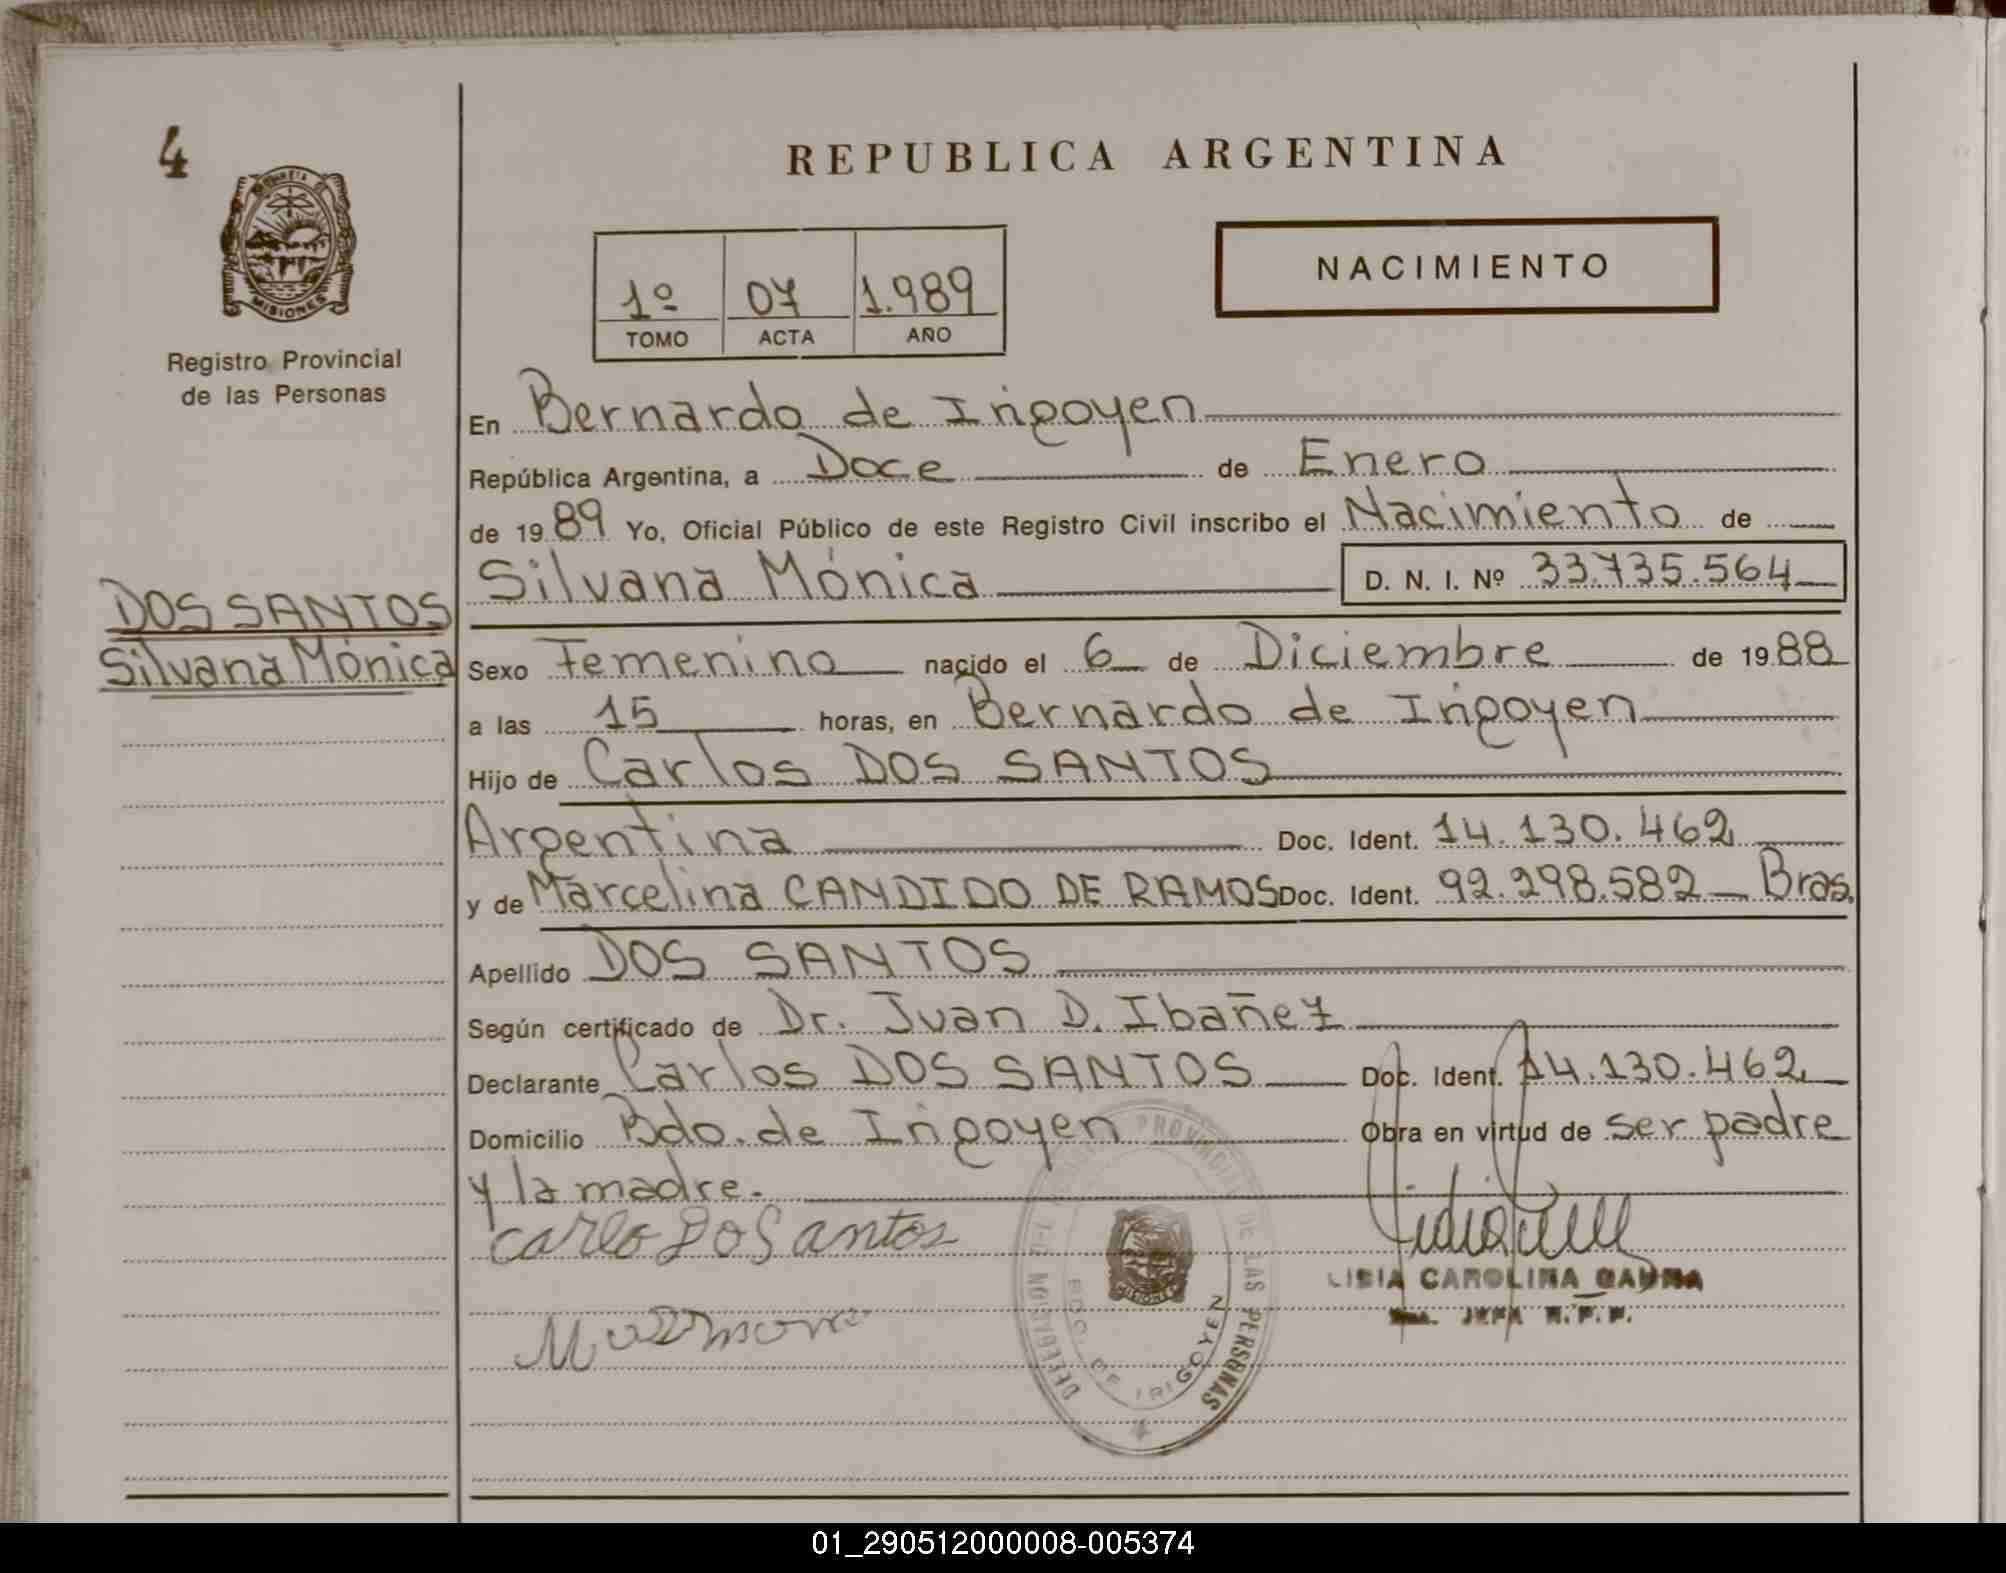 4
REPUBLICA ARGENTINA
NACIMIENTO
1º 07 1.989
TOMO ACTA AÑO
MISIONES
Registro Provincial
de las Personas
En Bernardo de Irigoyen
República Argentina, a Doce de Enero
de 1989 Yo, Oficial Público de este Registro Civil inscribo el Nacimiento de
Silvana Mónica D. N. I. Nº 33.735.564
DOS SANTOS
Silvana Mónica
Sexo Femenino nacido el 6 de Diciembre de 1988
a las 15 horas, en Bernardo de Irigoyen
Hijo de Carlos DOS SANTOS
Argentina Doc. Ident. 14.130.462
y de Marcelina CANDIDO DE RAMOS Doc. Ident. 92.298.582 Bras.
Apellido DOS SANTOS
Según certificado de Dr. Juan D. Ibañez
Declarante Carlos DOS SANTOS Doc. Ident. 14.130.462
Domicilio Bdo. de Irigoyen Obra en virtud de ser padre
y la madre.
Carlo Do Santos
PROVINCIAL DE LAS PERSONAS
DELEGACION
BDO. DE IRIGOYEN
MISIONES
LIDIA CAROLINA
JEFA R.P.P.
01_290512000008-005374